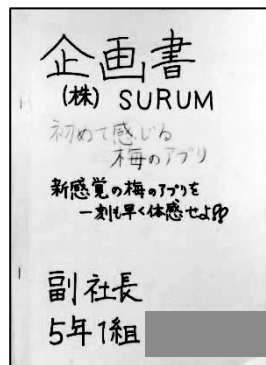 企画書
(株) SURUM
初めて感じる
梅のアプリ
新感覚の梅のアプリを
一刻も早く体感せよ!?
副社長
5年1組